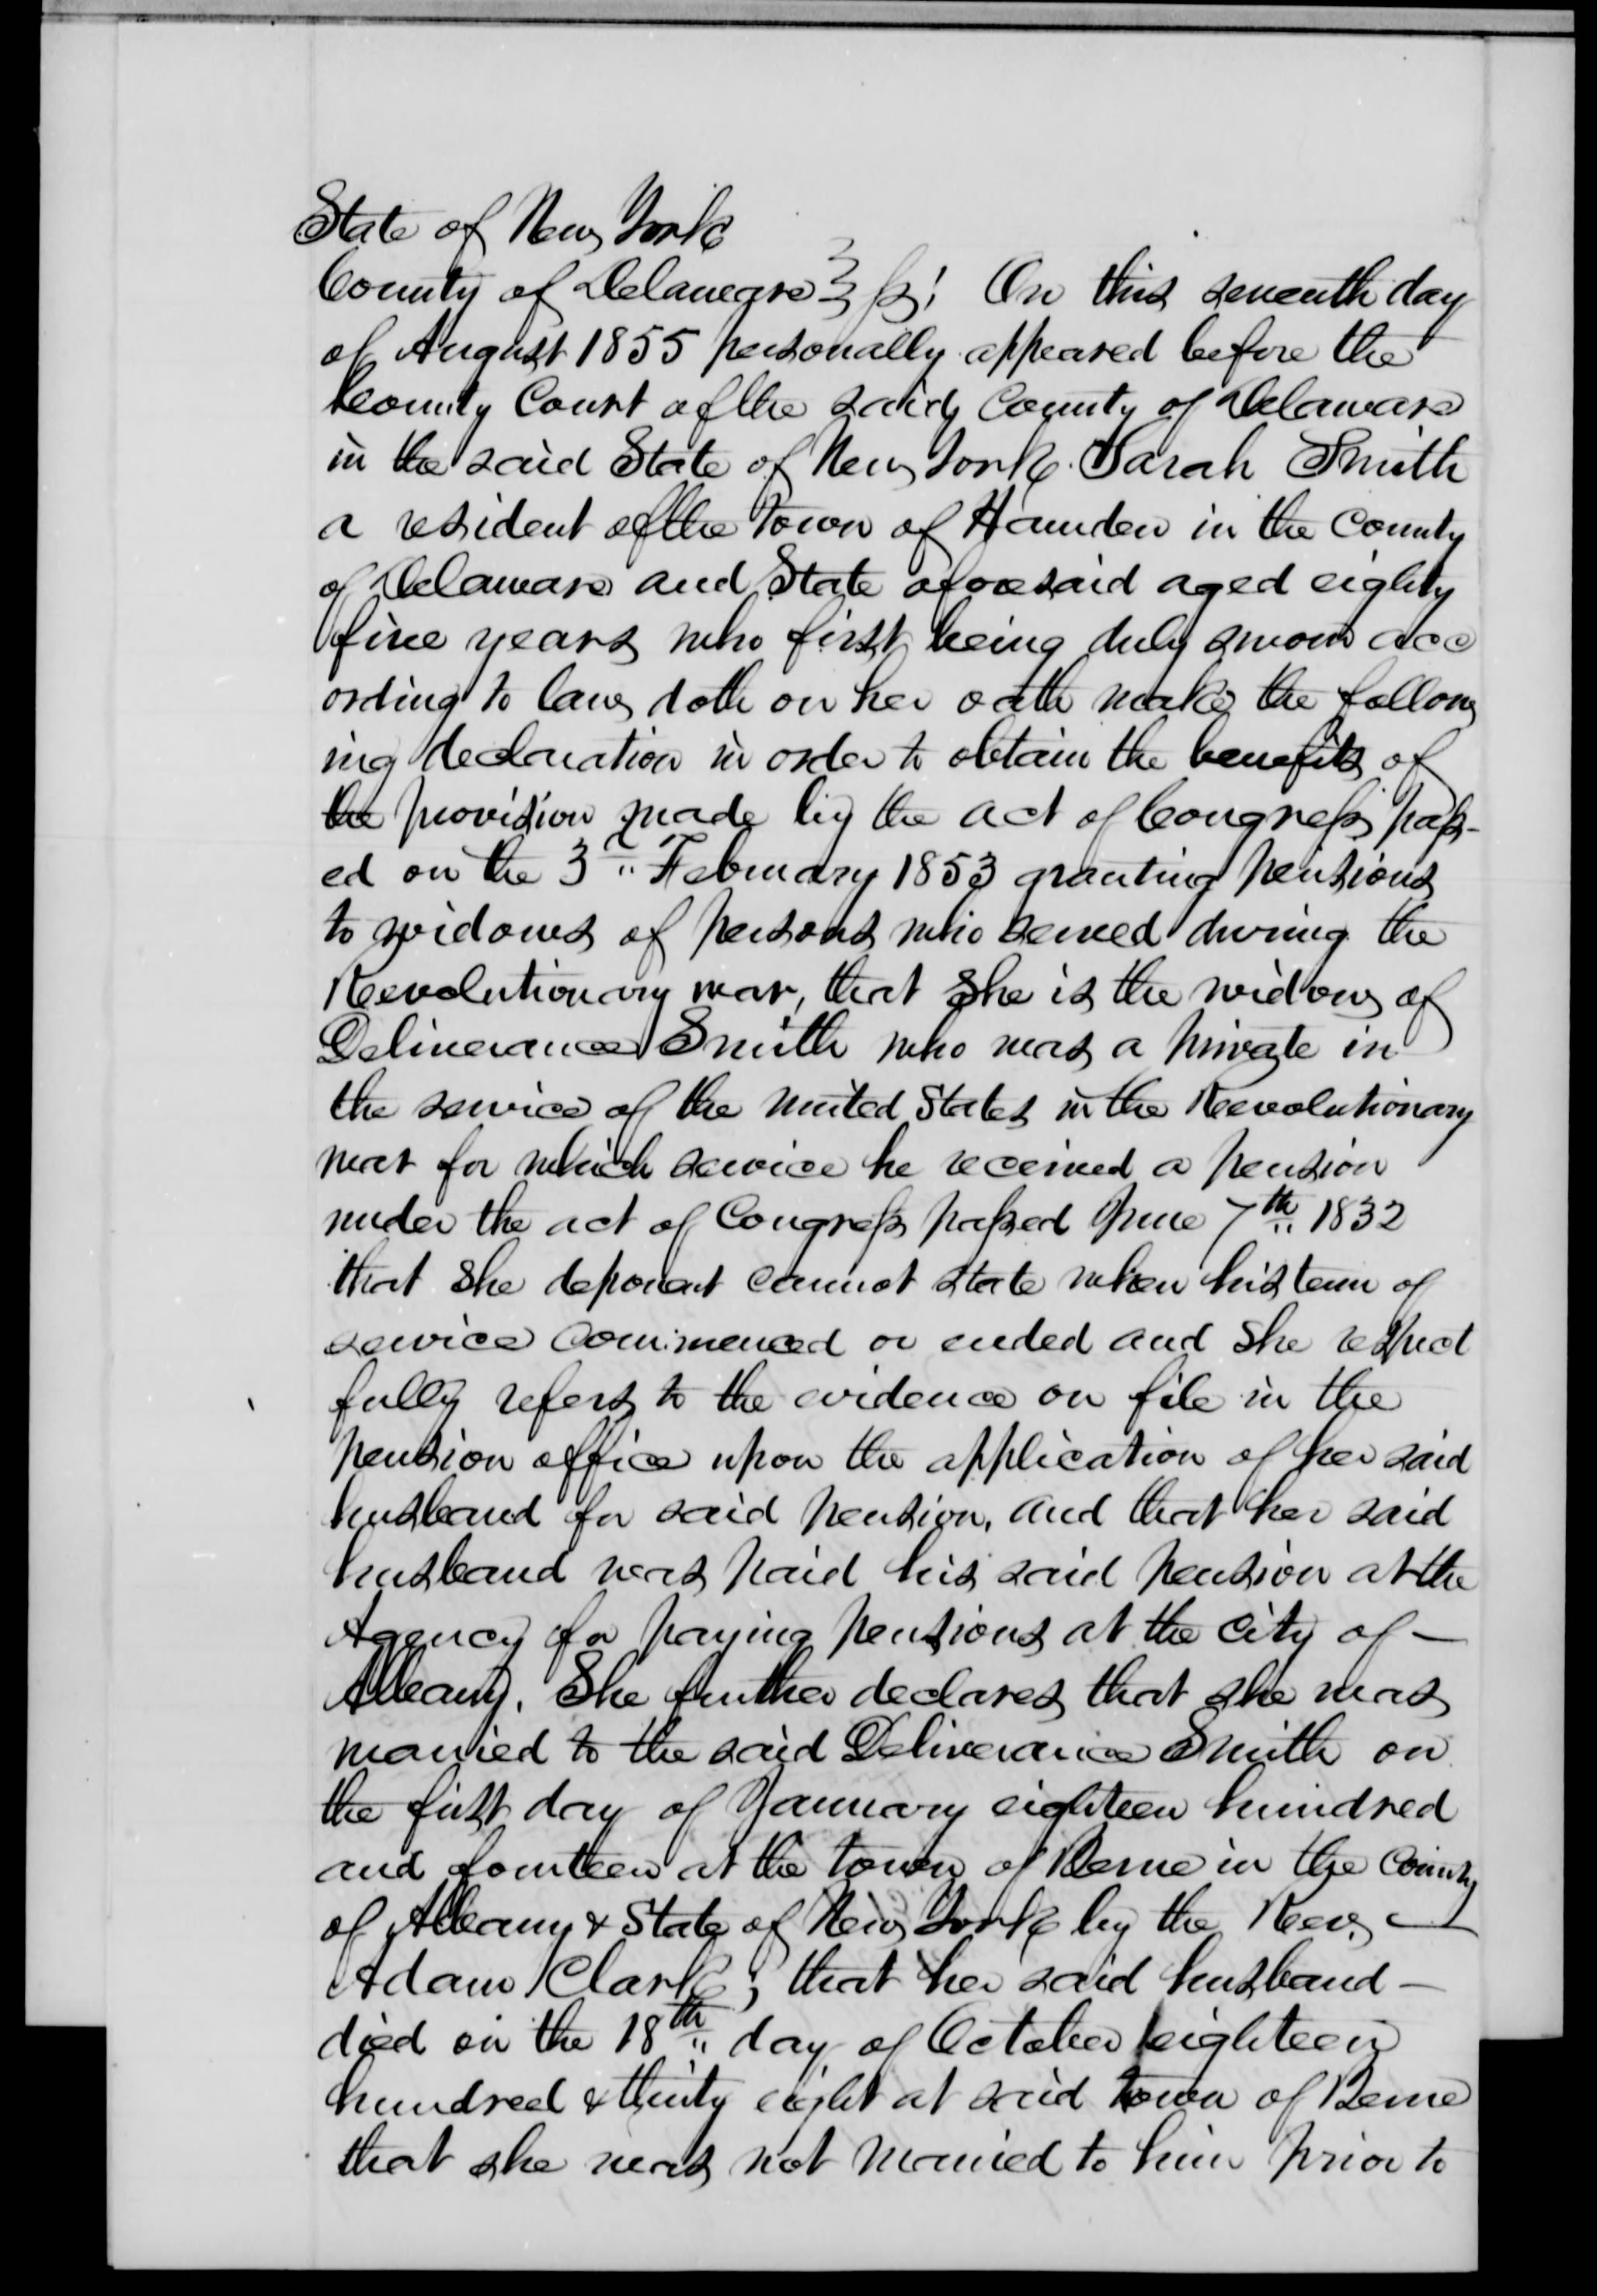 State of New York
County of Delaware } ss: On this seventh day
of August 1855 personally appeared before the
County Court of the said County of Delaware
in the said State of New York. Sarah Smith
a resident of the Town of Hamden in the County
of Delaware and State aforesaid aged eighty
five years who first being duly sworn acc
ording to law, doth on her oath make the follow
ing declaration in order to obtain the benefits of
the provision made by the act of Congress pass-
ed on the 3d February 1853 granting pensions
to widows of persons who served during the
Revolutionary war, that She is the widow of
Deliverance Smith who was a private in
the service of the united States in the Revolutionary
war for which service he received a pension
under the act of Congress passed June 7th 1832
that She deponent cannot state when his term of
service commenced or ended and She respect
fully refers to the evidence on file in the
pension office upon the application of her said
husband for said pension, and that her said
husband was paid his said pension at the
Agency for paying pensions at the City of —
Albany. She further declares that she was
married to the said Deliverance Smith on
the first day of January eighteen hundred
and fourteen at the town of Berne in the County
of Albany & State of New York by the Rev. —
Adam Clark; that her said husband —
died on the 18th day of October eighteen
hundred & thirty eight at said town of Berne
that she was not married to him prior to